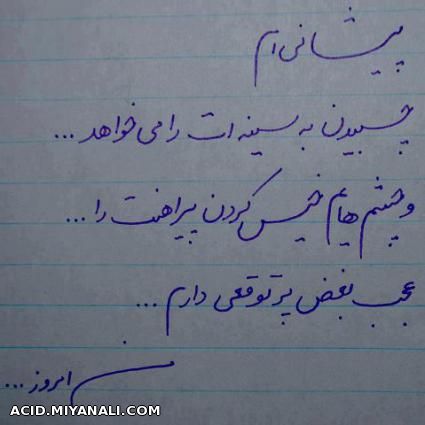 پیشانی ام
چسبیدن به سینه ات را می خواهد ...
و چشم هایم خیس کردن پیراهنت را ...
عجب بغض پر توقعی دارم ...
من امروز ...
ACID.MIYANALI.COM